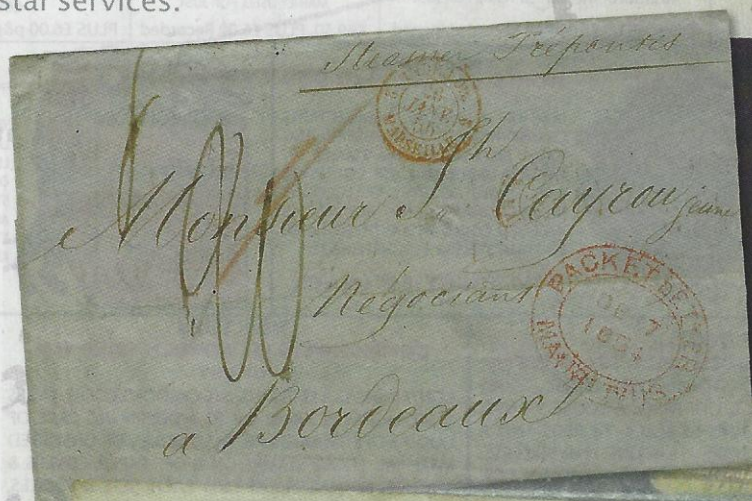 star services.
PLUS £6.00
Steamer
MARSEILLE
Monsieur Jph Cayrou jeune
Négociant
PACKET LETTER
DE 7
1854
MAURITIUS
à Bordeaux